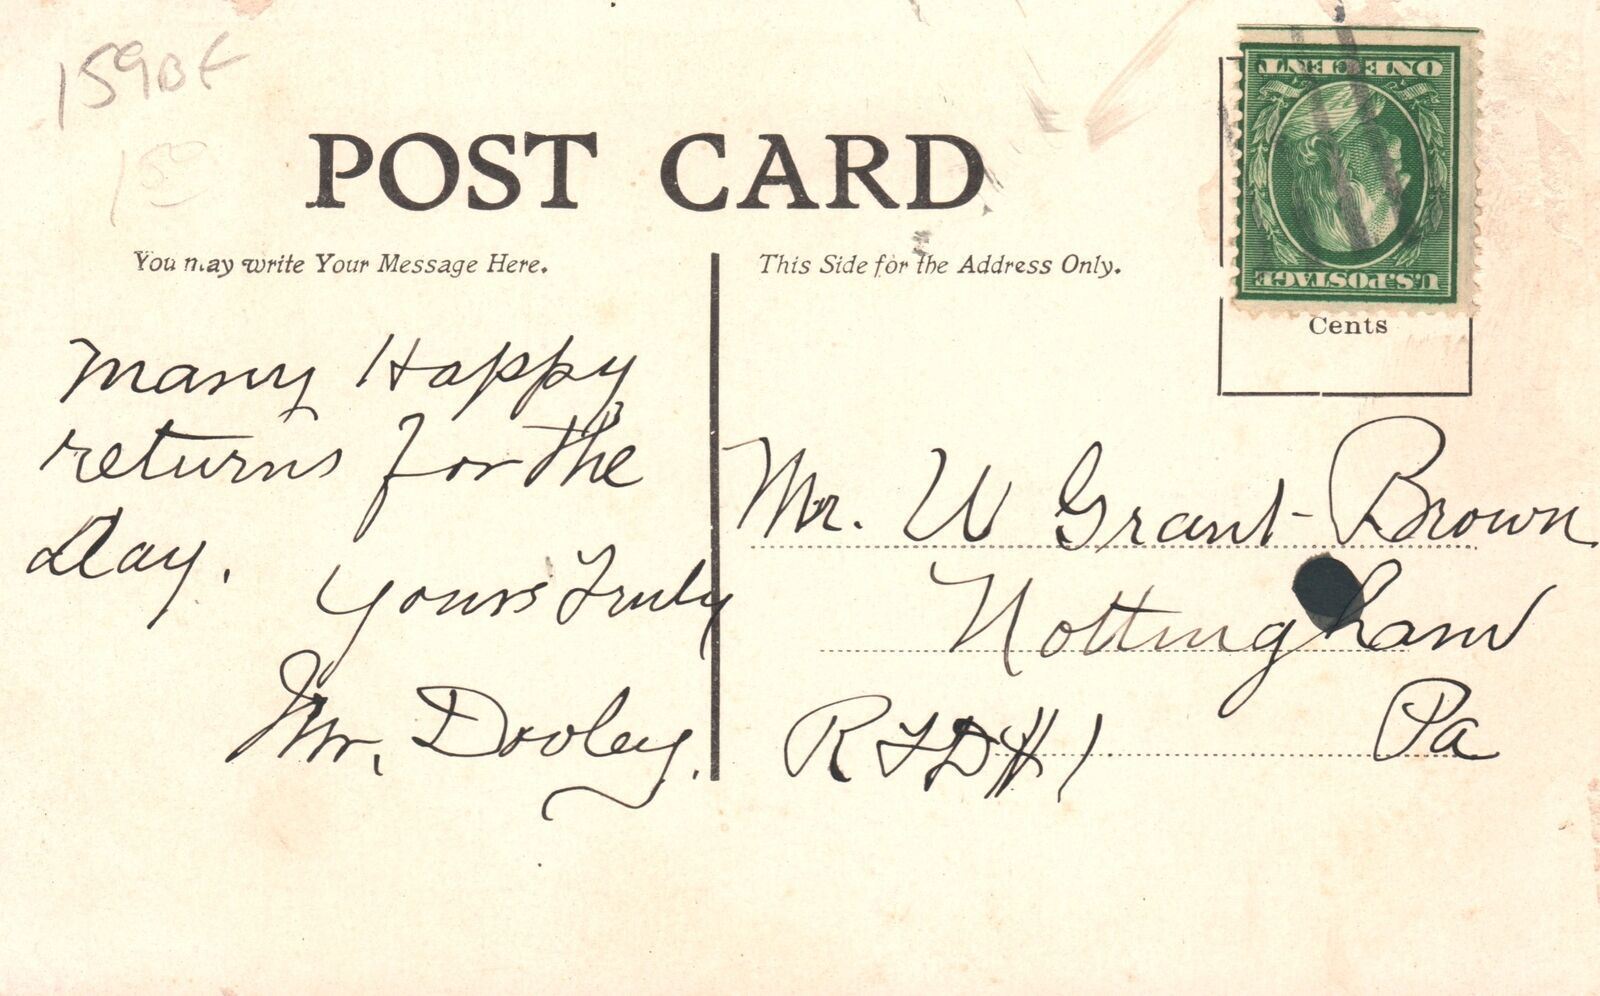 159BF
15
POST CARD
You may write Your Message Here.
This Side for the Address Only.
ONE CENT
U.S. POSTAGE
Cents
Many Happy
returns for the
day.
Yours Truly
Mr. Dooley.
Mr. W Grant Brown
Nottingham
RFD # 1 Pa